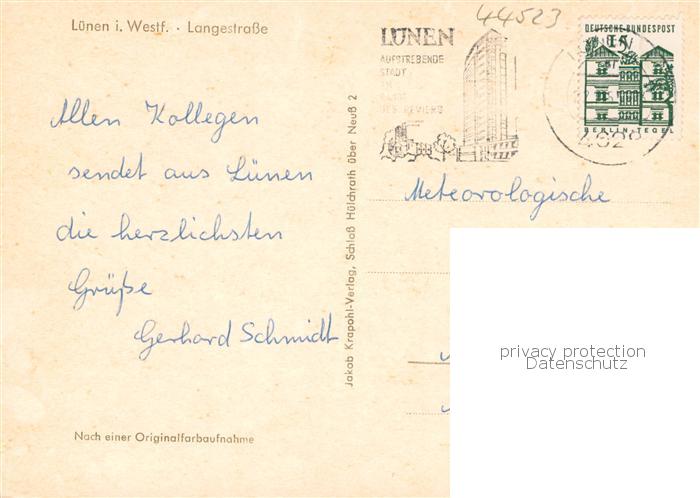 Lünen i. Westf. · Langestraße
Allen Kollegen
sendet aus Lünen
die herzlichsten
Grüße
Gerhard Schmidt
Nach einer Originalfarbaufnahme
Jakob Krapohl-Verlag, Schloß Hülchrath über Neuß 2
44523
LÜNEN
AUFSTREBENDE
STADT
DES REVIERS
DEUTSCHE BUNDESPOST
15
BERLIN-TEGEL
4628
Meteorologische
privacy protection
Datenschutz